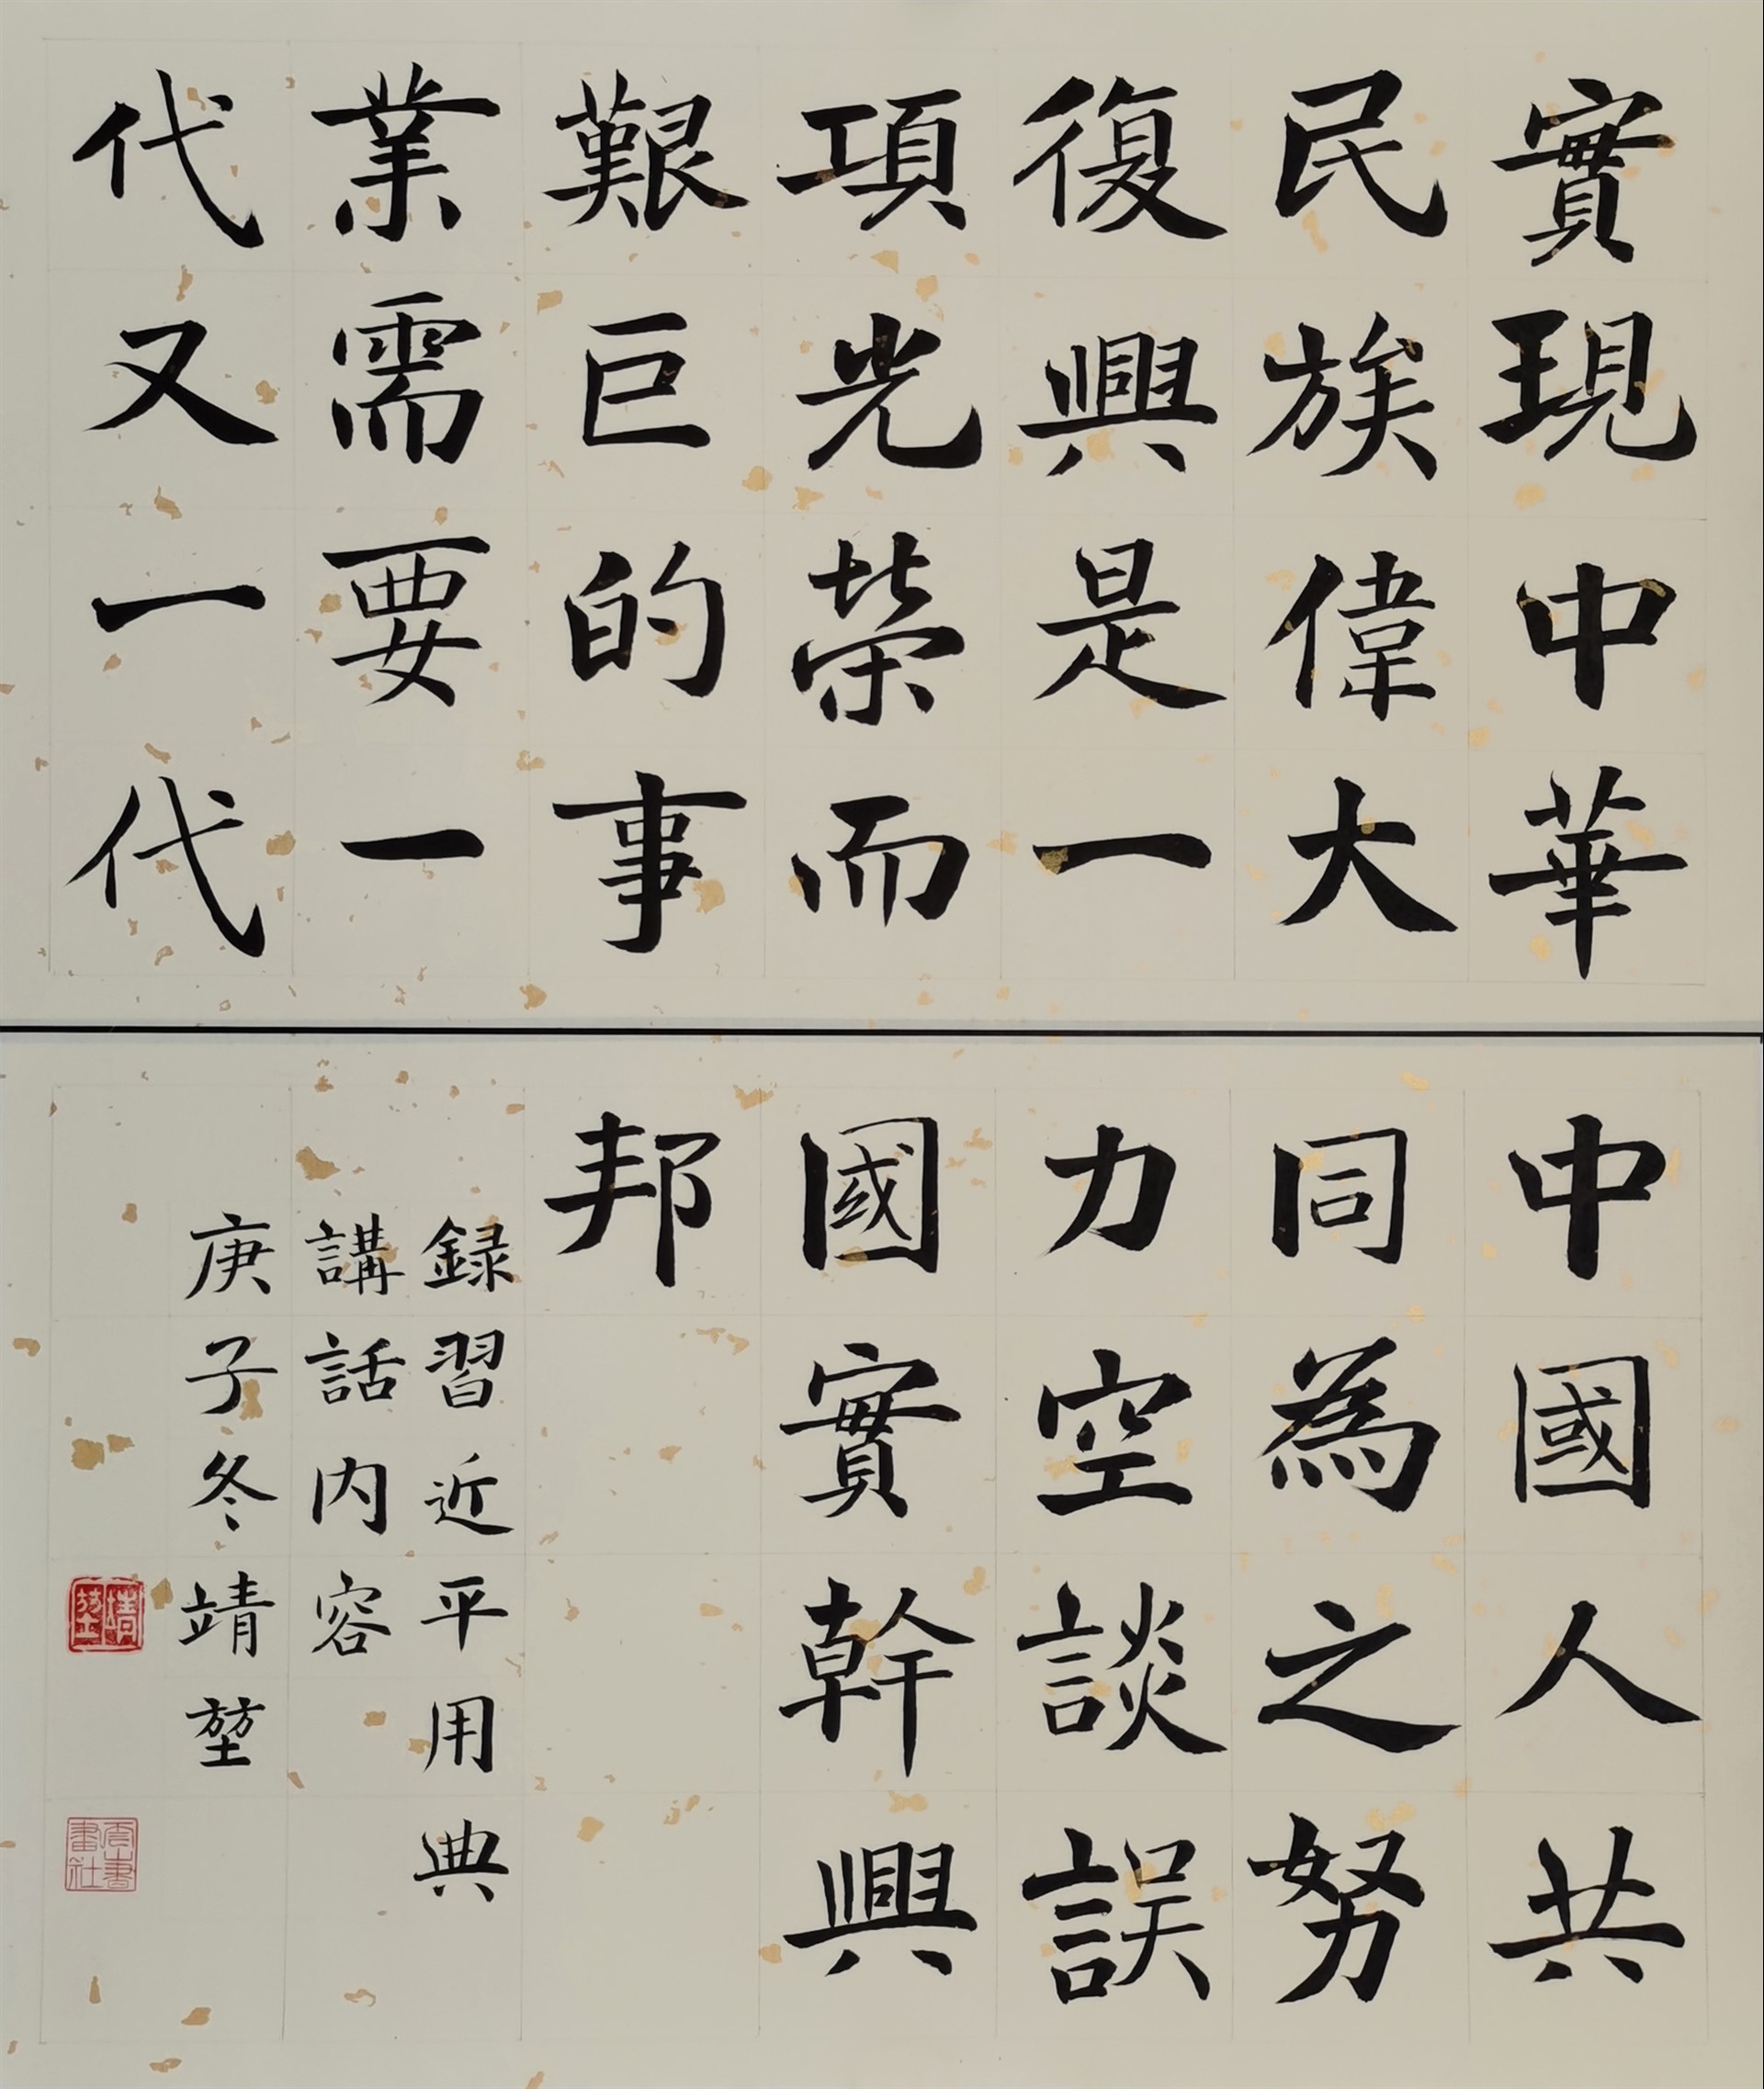 實現中華
民族偉大
復興是一
項光榮而
艱巨的事
業需要一
代又一代
中國人共
同為之努
力空談誤
國實幹興
邦
録習近平用典
講話内容
庚子冬靖堃